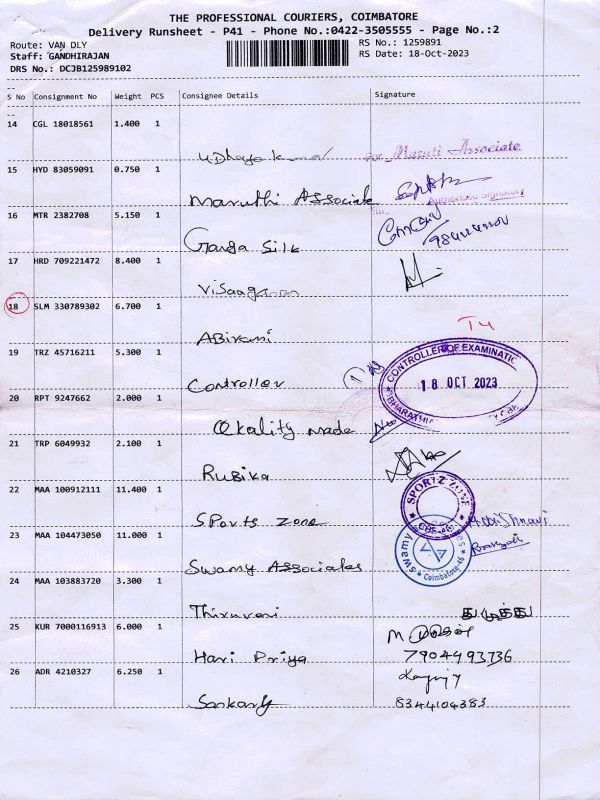 THE PROFESSIONAL COURIERS, COIMBATORE
Delivery Runsheet - P41 - Phone No.:0422-3505555 - Page No.:2
Route: VAN DLY
RS No.: 1259891
Staff: GANDHIRAJAN
RS Date: 18-Oct-2023
DRS No.: DCJB125989102
S No Consignment No Weight PCS Consignee Details Signature
14 CGL 18018561 1.400 1
Udhaya kumar For Maruti Associate
15 HYD 83059091 0.750 1
Maruthi Associate Authorised Signatory
16 MTR 2382708 5.150 1
Ganga Silk
17 HRD 709221472 8.400 1
Visaagaran
18 SLM 330789302 6.700 1
Abirami
T4
19 TRZ 45716211 5.300 1
Controller
CONTROLLER OF EXAMINATIO
18 OCT 2023
BHARATHIA
20 RPT 9247662 2.000 1
Qkality made
21 TRP 6049932 2.100 1
Rubika
22 MAA 100912111 11.400 1
Sports zone
SPORTZ ZONE
23 MAA 104473050 11.000 1
Swamy Associates
Swamy
Coimbatore-46
24 MAA 103883720 3.300 1
Thiruveni
25 KUR 7000116913 6.000 1
Hari Priya
7904493736
26 ADR 4210327 6.250 1
Sankary
8344104383